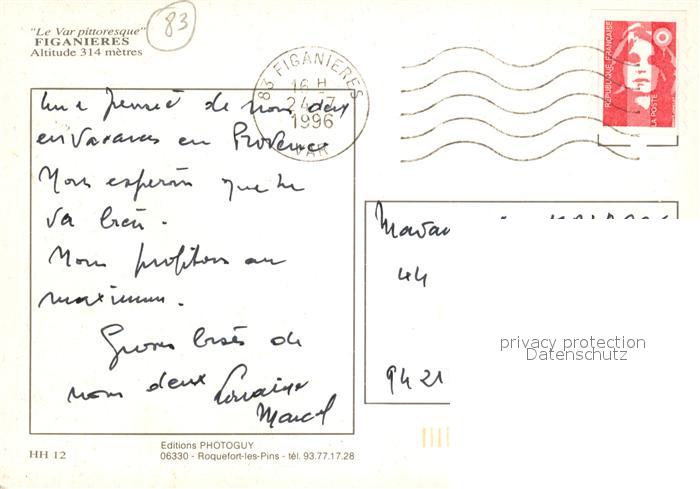 "Le Var pittoresque"
FIGANIERES
Altitude 314 mètres
83
83 FIGANIERES
16 H
24-7
1996
VAR
REPUBLIQUE FRANÇAISE
LA POSTE
une pensée de nous deux
en vacances en Provence
Nous espérons que tu
va bien.
Nous profitons au
maximum.
Grosses bises de
nous deux Lorraine
Marcel
Mada
44
9421
privacy protection
Datenschutz
HH 12
Editions PHOTOGUY
06330 - Roquefort-les-Pins - tél. 93.77.17.28